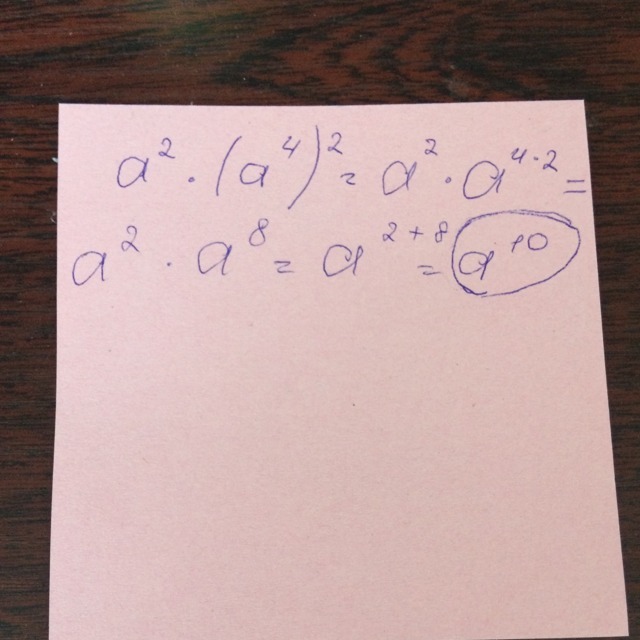 a² · (a⁴)² = a² · a⁴·² =
a² · a⁸ = a²⁺⁸ = a¹⁰